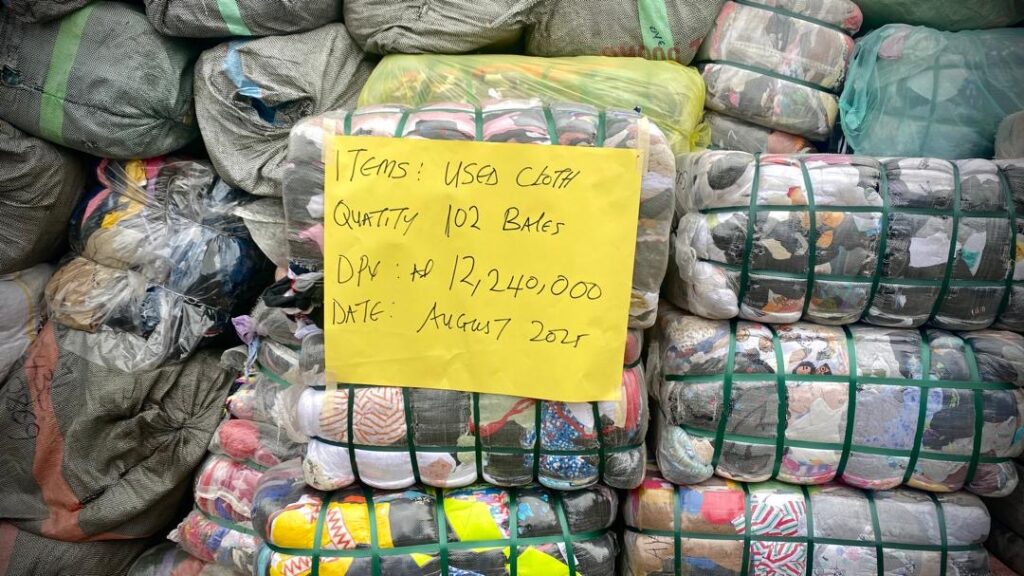 ITEMS: USED CLOTH
QUATITY 102 BALES
DPV: 12,240,000
DATE: AUGUST 2025